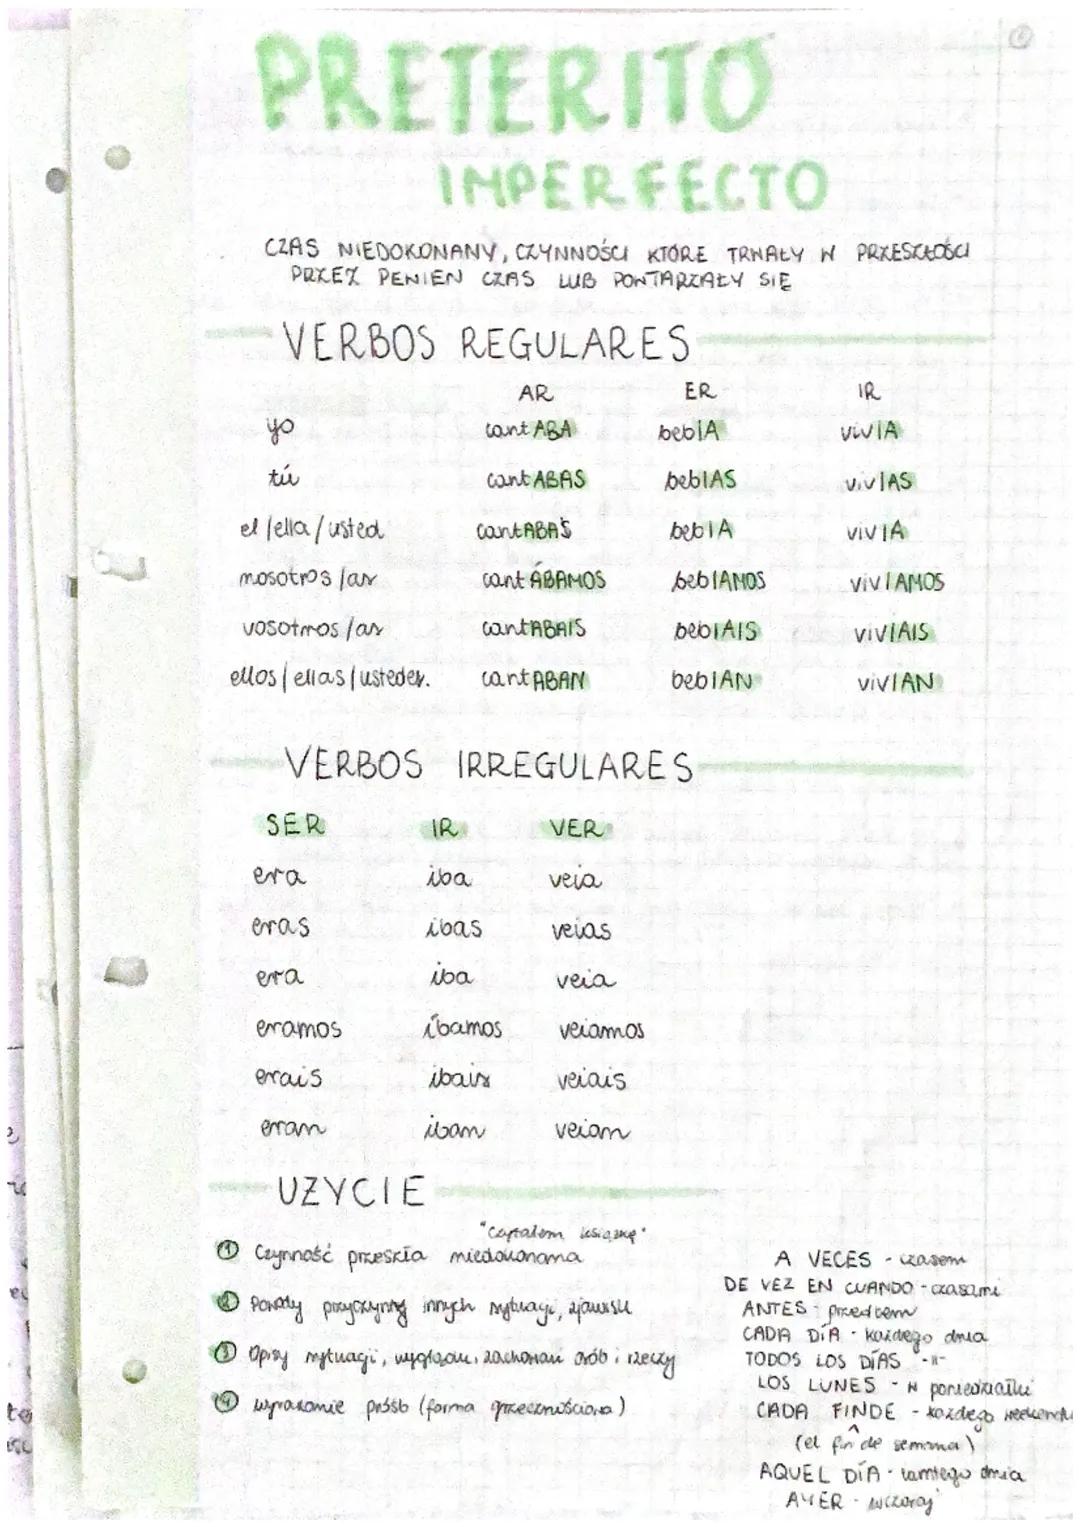 PRETERITO
IMPERFECTO
CZAS NIEDOKONANY, CZYNNOŚCI KTÓRE TRWAŁY W PRZESZŁOŚCI
PRZEZ PEWIEN CZAS LUB POWTARZAŁY SIĘ
VERBOS REGULARES
AR ER IR
yo cantABA bebIA vivIA
tú cantABAS bebIAS vivIAS
el/ella/usted cantABAS bebIA vivIA
nosotros/as cantÁBAMOS bebIAMOS vivIAMOS
vosotros/as cantABAIS bebIAIS vivIAIS
ellos/ellas/ustedes. cantABAN bebIAN vivIAN
VERBOS IRREGULARES
SER IR VER
era iba veia
eras ibas veias
era iba veia
eramos íbamos veiamos
erais ibais veiais
eran iban veian
UŻYCIE
"Czytałem książkę"
① Czynność przeszła niedokonana
② Powody przyczyny innych sytuacji, zjawisk
③ Opisy sytuacji, wyglądu, zachowań osób i rzeczy
④ wyrażanie próśb (forma grzecznościowa)
A VECES - czasem
DE VEZ EN CUANDO - czasami
ANTES - przedtem
CADA DÍA - każdego dnia
TODOS LOS DÍAS -||-
LOS LUNES - W poniedziałki
CADA FINDE - każdego weekendu
(el fin de semana)
AQUEL DÍA - tamtego dnia
AYER - wczoraj